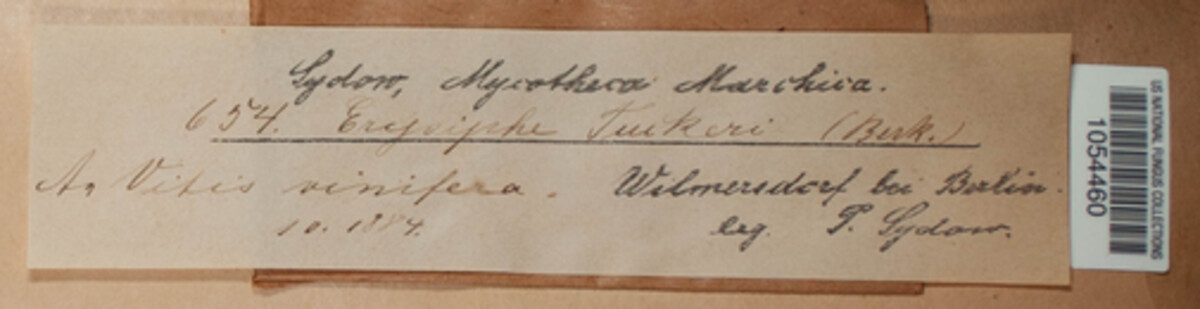 Sydow, Mycotheca Marchica.
654. Erysiphe Tuckeri (Berk.)
An Vitis vinifera.
10. 1884.
Wilmersdorf bei Berlin.
leg. P. Sydow.
US NATIONAL FUNGUS COLLECTIONS
1054460